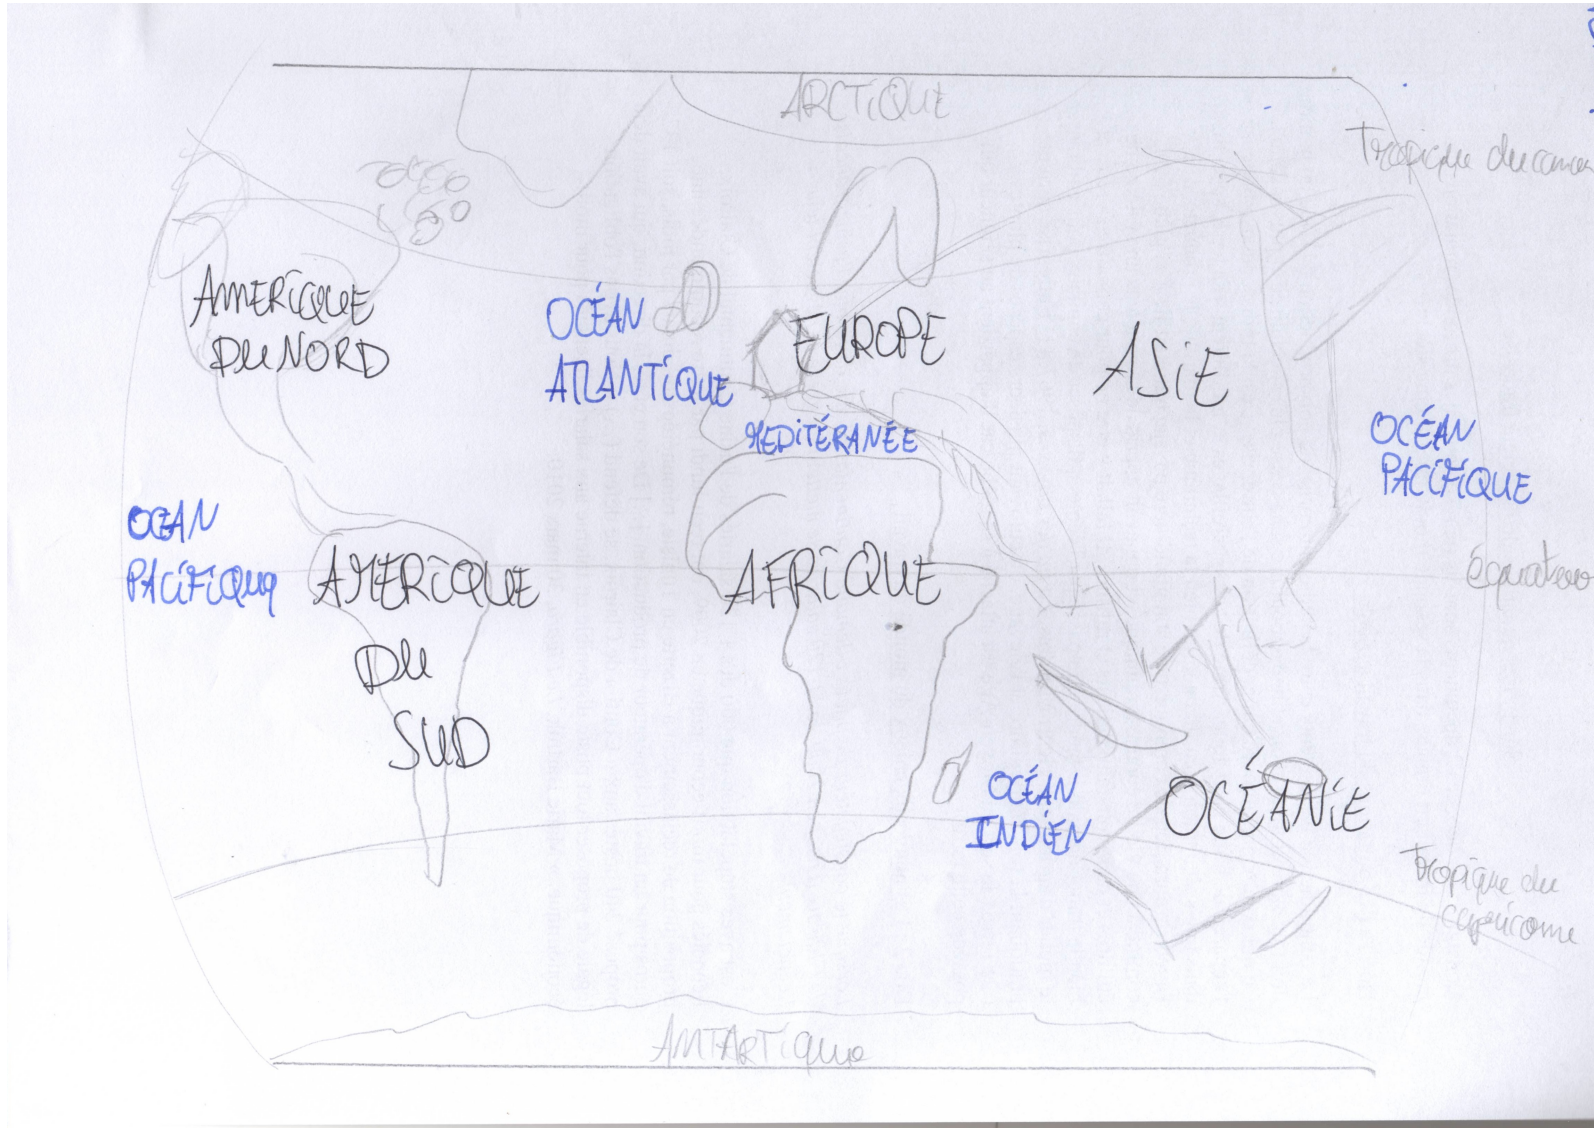 ARCTIQUE
Tropique du cancer
AMERIQUE
DU NORD
OCÉAN
ATLANTIQUE
EUROPE
ASIE
MEDITÉRANÉE
OCÉAN
PACIFIQUE
OCEAN
PACIFIQUE
AMERIQUE
DU
SUD
AFRIQUE
équateur
OCÉAN
INDIEN
OCÉANIE
Tropique du
capricorne
ANTARTIQUE